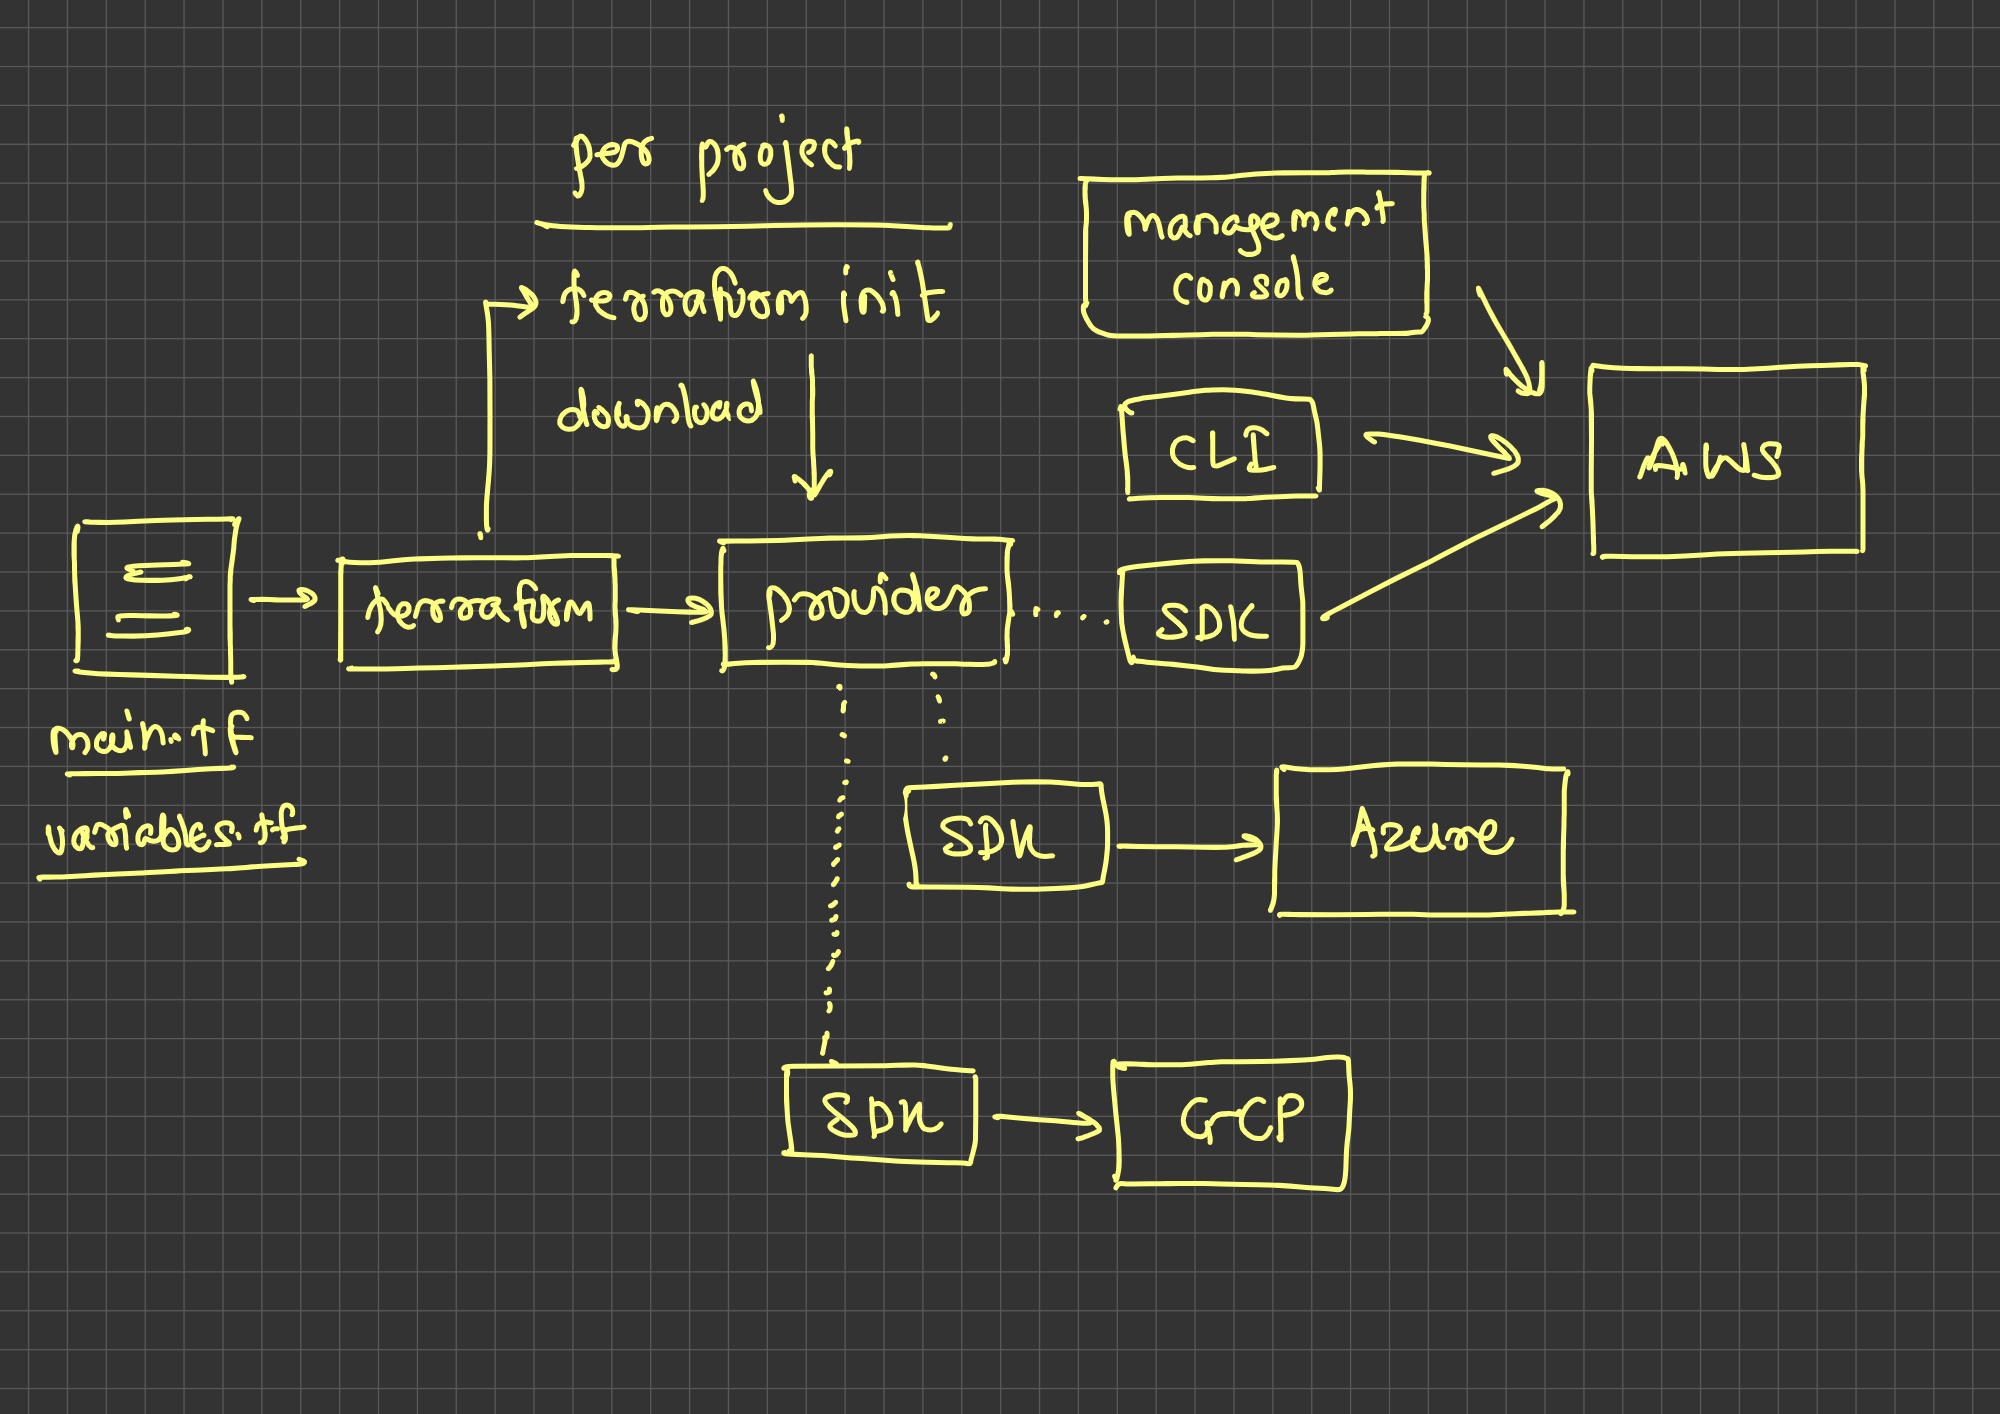 per project
terraform init
download
management
console
CLI
AWS
terraform
provider
SDK
main.tf
variables.tf
SDK
Azure
SDK
GCP